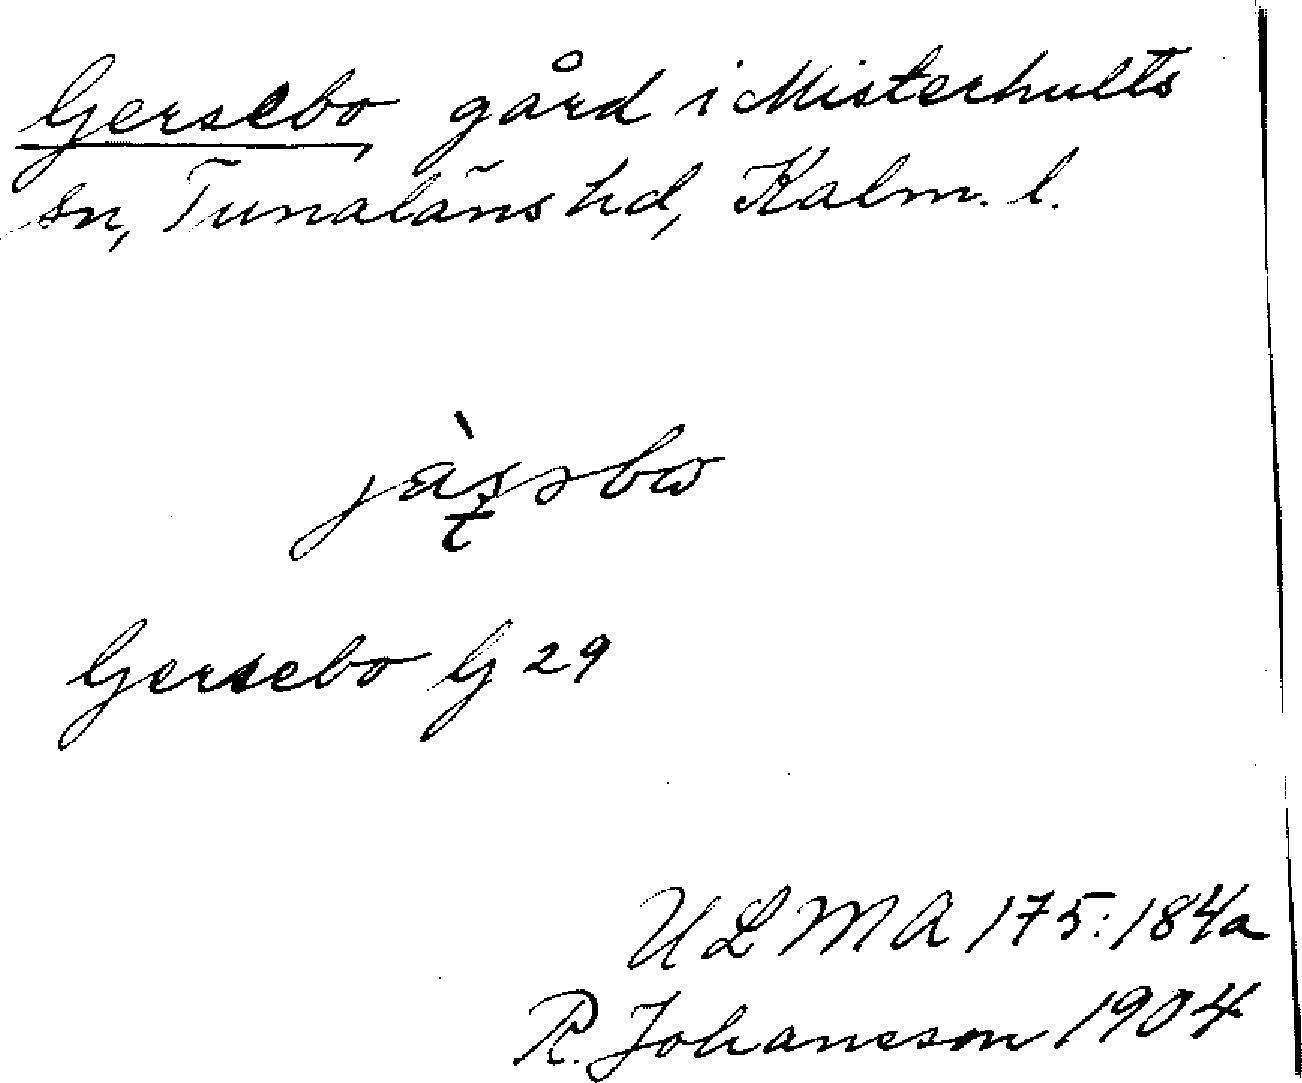 Gersebo, gård i Misterhults
sn, Tunaläns hd, Kalm. l.
Gersebo G 29
ULMA 175:184a
R. Johansson 1904